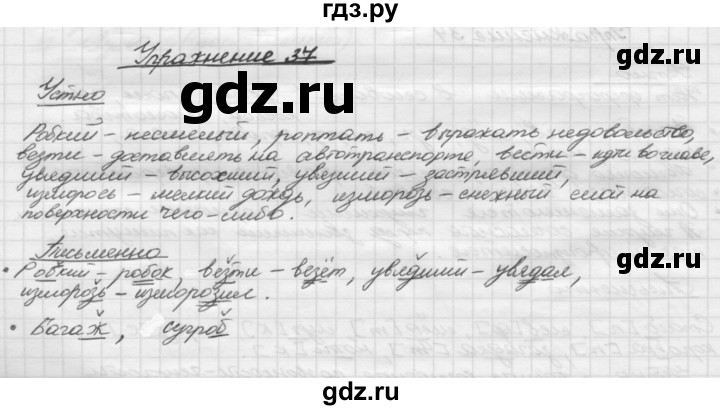 гдз.ру
Упражнение 37
gdz.ru
Устно
gdz.ru
Робкий – несмелый, роптать – выражать недовольство,
везти – доставлять на автотранспорте, вести – идти во главе,
увядший – высохший, увязший – застрявший,
изморось – мелкий дождь, изморозь – снежный слой на
поверхности чего-либо.
gdz.ru
gdz.ru
Письменно
• Робкий – робок, везти – везёт, увядший – увядал,
изморозь – изморозил.
• Багаж, сугроб
gdz.ru
gdz.ru